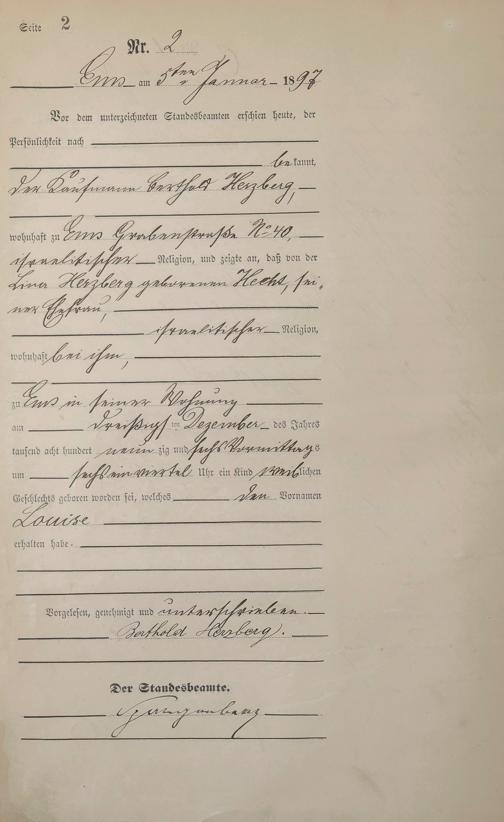 Seite 2
Nr. 2
Ems am 5ten Januar 1897
Vor dem unterzeichneten Standesbeamten erschien heute, der
Persönlichkeit nach
bekannt,
der Kaufmann Berthold Herzberg,
wohnhaft zu Ems Grabenstraße No 40,
israelitischer Religion, und zeigte an, daß von der
Lina Herzberg geborenen Hecht, sei-
ner Ehefrau,
israelitischer Religion,
wohnhaft bei ihm,
zu Ems in seiner Wohnung
am dreißigsten Dezember des Jahres
tausend acht hundert neunzig und sechs Vormittags
um sechs ein viertel Uhr ein Kind weiblichen
Geschlechts geboren worden sei, welches den Vornamen
Louise
erhalten habe.
Vorgelesen, genehmigt und unterschrieben.
Berthold Herzberg.
Der Standesbeamte.
Spangenberg